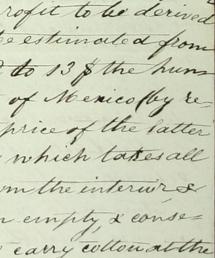 rofit to be derived
be estimated from
to 13 $ the hun-
of Mexico (by re-
price of the latter
which takes all
m the interior &
n empty, & conse-
carry cotton at the